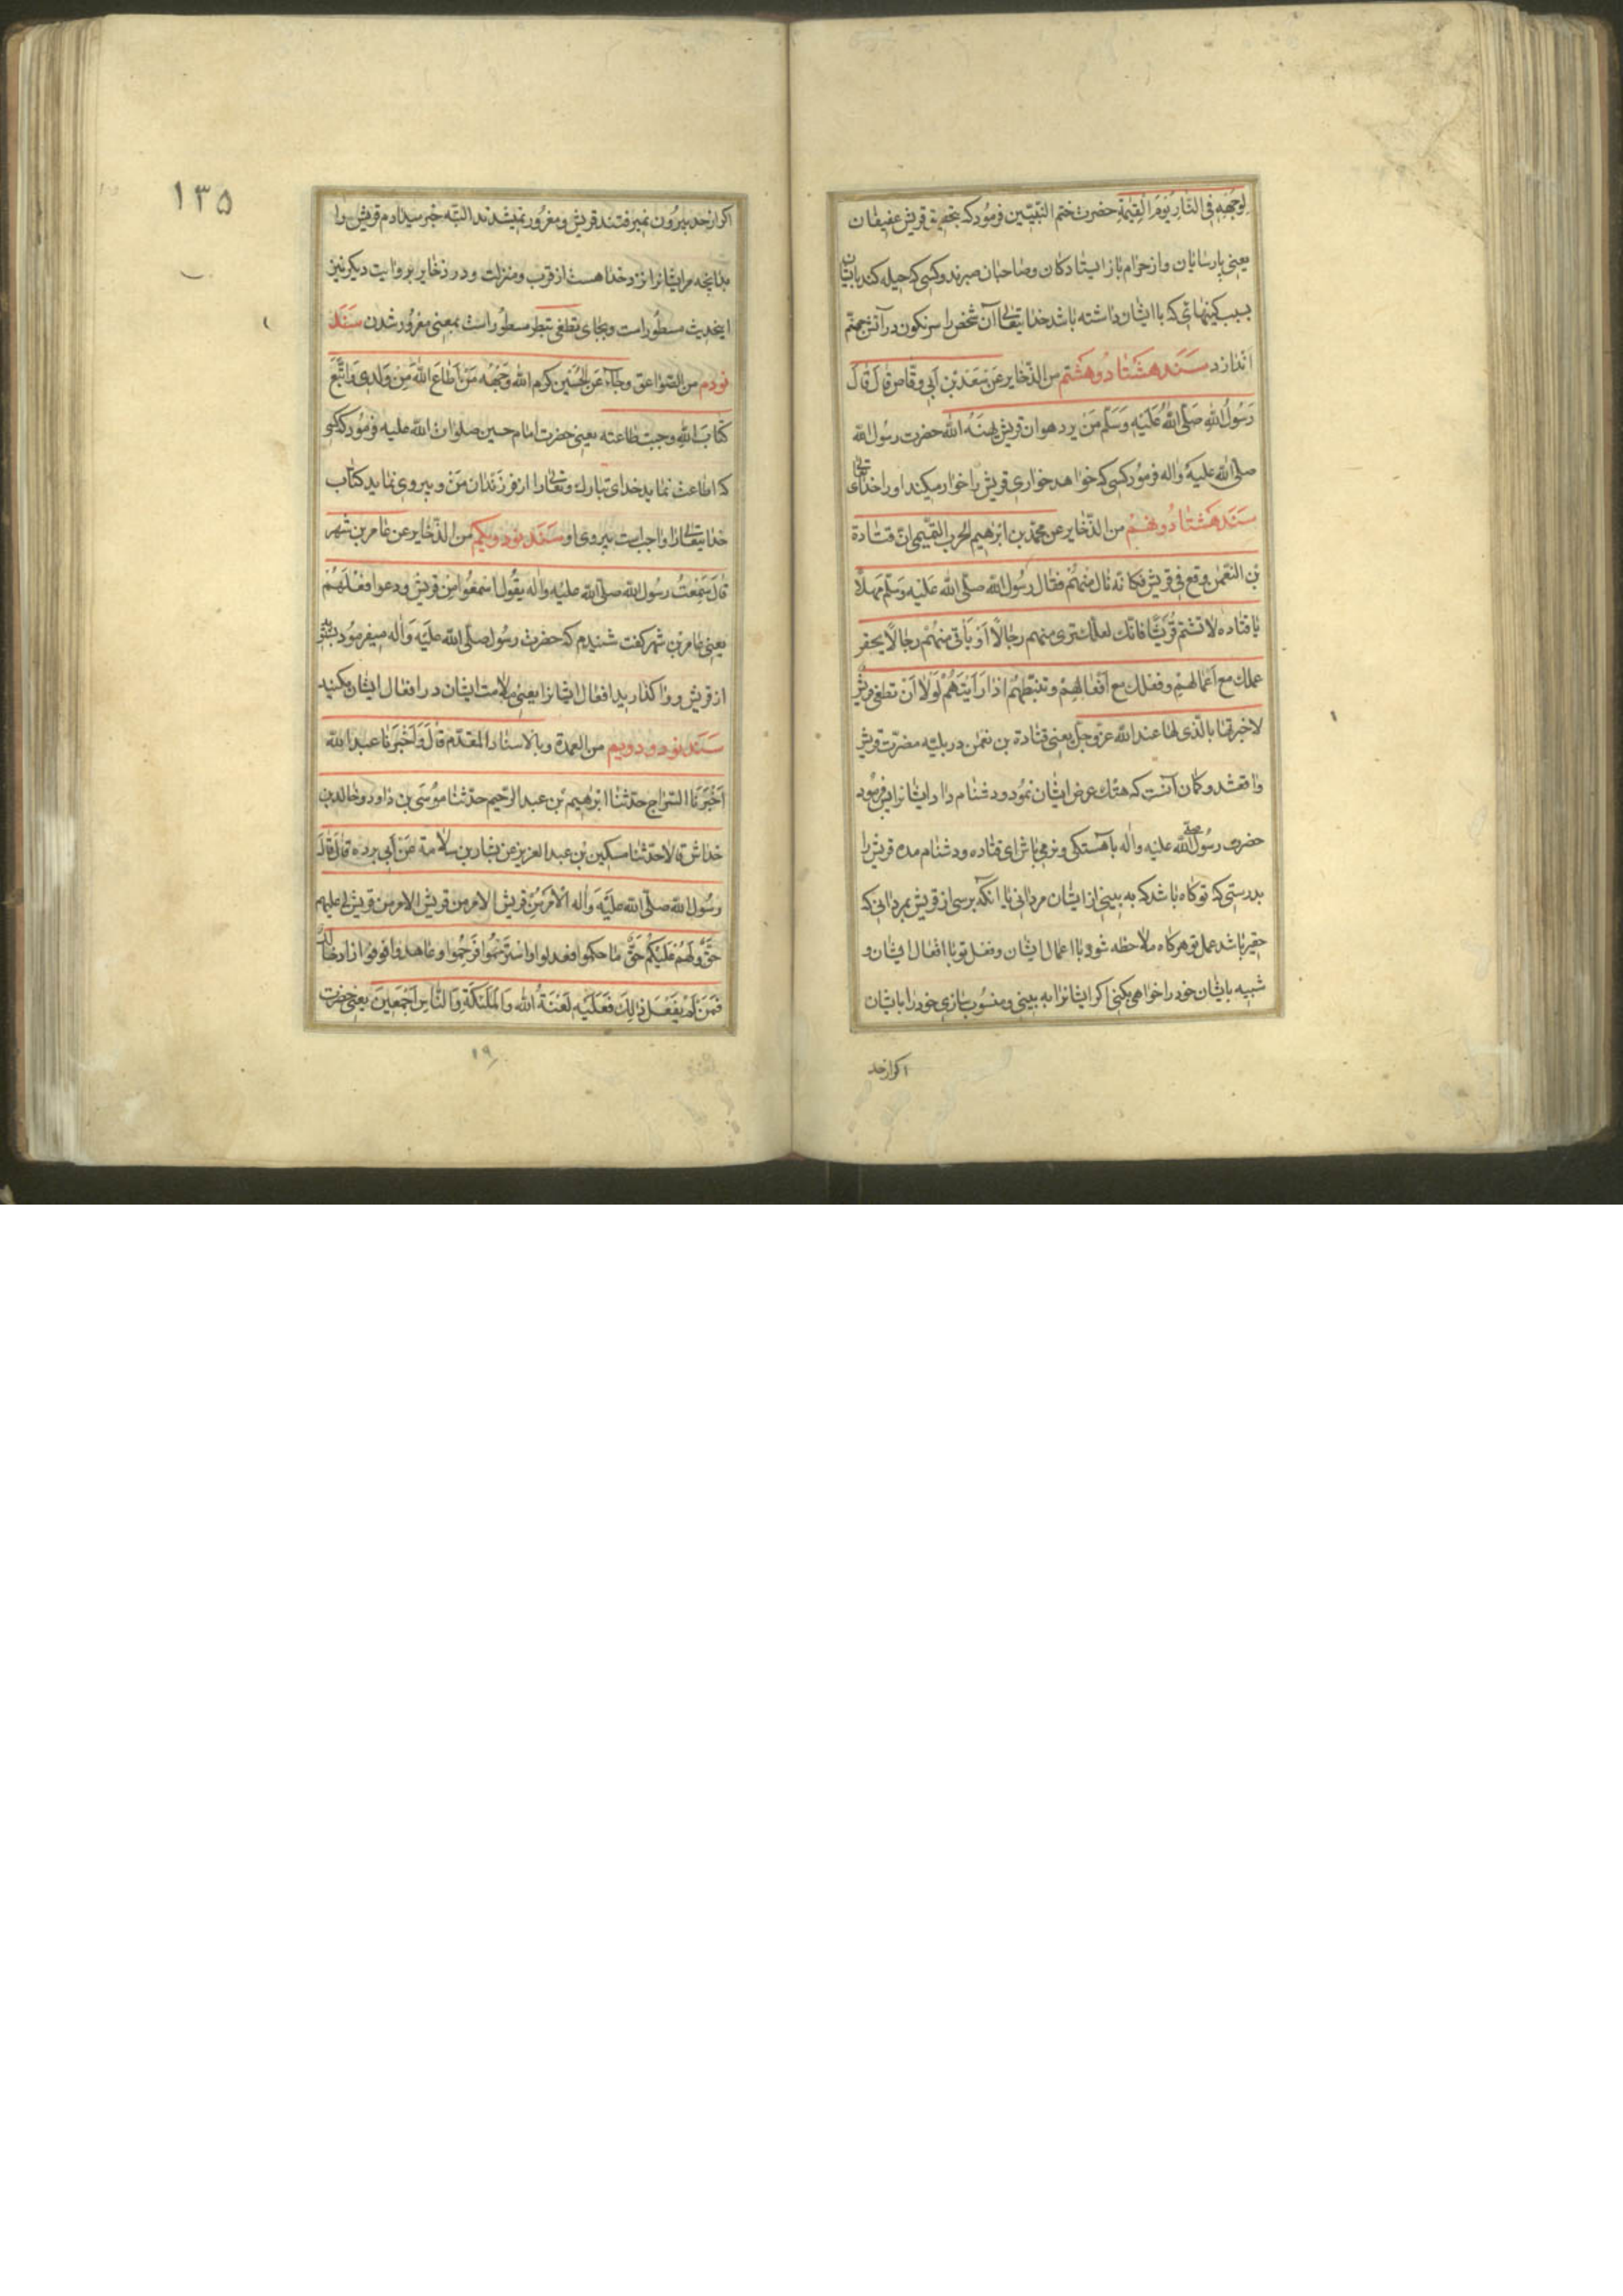 لوجهه فی النار یوم القیمة حضرت ختم النبیین فرمود که بتحقیق قریش عفیفان
یعنی پارسایان و از حرام باز ایستادکان و صاحبان صبرند و کسی که حیله کند بایشان
بسبب کینهائی که با ایشان داشته باشد خدایتعالی آن شخص را سرنکون در آتش جهنم
اندازد سَنَد هَشتاد و هَشتم من الذخایر عَن سَعَد بْن اَبی وقاص قالَ قالَ
رَسُولُ اللهِ صَلّی اللهُ عَلَیهِ وَسَلّم مَن یرد هوان قریش یهنهُ الله حضرت رسول الله
صلی الله علیه واله فرمود کسی که خواهد خواری قریش را خوار میکند او را خدای تعالی
سَنَد هَشتاد و نهم من الذخایر عن محمد بن ابرهیم الحرب التیمی ان قتادة
بن النعمن وقع فی قریش فکانه نال منهم فقال رسول الله صلی الله علیه وسلم مهلاً
یا قتاده لا تشتم قریشا فانک لعلک تری منهم رجالاً اَوْ یاتی منهُم رجالاً یحقر
عملک مع اَعمالهم وفعلک مع اَفعالهِمْ وتغبطهُم اذا رَاَیتهُمْ لَوْلا اَنْ تطغی قریش
لاخبرتها بالذی لها عند الله عزوجل یعنی قتادة بن نعمن در بلیه مضرت قریش
واقع شد و کان آنست که هتک عرض ایشان نمود و دشنام داد ایشانرا پس فرمود
حضرت رسول الله صلی علیه واله باهستکی و نرمی باش ای قتاده و دشنام مده قریش را
بدرستی که تو کاه باشد که به بینی از ایشان مردانی یا انکه برسی از قریش بمردانی که
حقیر باشد عمل تو هرکاه ملاحظه شود با اعمال ایشان و فعل تو با افعال ایشان و
شبیه بایشان خود را خواهی بکنی اکر ایشانرا به بینی و منسوب سازی خود را بایشان
اکر از حد
۱۳۵
اکر از حد بیرون نمیرفتند قریش و مغرور نمیشدند البته خبر میدادم قریش را
بدانچه مر ایشانرا نزد خدا هست از قرب و منزلت و در ذخایر بروایت دیکر نیز
اینحدیث مسطور است و بجای تطغی تبطر مسطور است بمعنی مغرور شدن سَنَد
نودم من الصواعق وجاء عَن الحُسَین کرم الله وَجْهَه مَنْ اَطاعَ اللهَ مِنْ وَلَدی وَاتَّبَعَ
کتابَ اللهِ وجبت طاعته یعنی حضرت امام حسین صلوات الله علیه فرمود که کسی
که اطاعت نماید خدای تبارک وتعالی را از فرزندان مَن و پیروی نماید کتاب
خدایتعالی را واجبست پیروی او سَنَد نود و یکم من الذخایر عن عامر بن شهر
قالَ سَمِعْتُ رسول الله صلی الله علیه واله یقُول اسمعُوا مِن قریش ودعوا فعْلَهُمْ
یعنی عامر بن شهر کفت شنیدم که حضرت رسول صلی الله علیه وَاله میفرمود بشنوید
از قریش و واکذارید افعال ایشانرا یعنی ملامت ایشان در افعال ایشان مکنید
سَنَد نود و دویم من العمدة وبالاسناد المقدم قالَ وَاَخْبَرَنا عبد الله
اَخْبَرَنَا السراج حدثنا ابرهیم بْن عبد الرحیم حدثنا موسَی بن داود وخالد بن
خداش قالا حدثنا سکین بْن عبد العزیز عن سیار بن سلامة عَن اَبی برده قالَ قالَ
رسول الله صلی الله علیه وَاله الاُمَرَاءُ من قریش الامر من قریش الامر من قریش لی علیهم
حَقٌّ ولَهُم عَلَیکُم حَقٌّ ما حکموا فعدلوا واسترحمُوا فَرَحِمُوا وعاهدوا فوفوا
فَمَنْ لَمْ یَفْعَلْ ذٰلِکَ فَعَلَیْهِ لَعْنَةُ اللهِ وَالْمَلٰئِکَةِ وَالنَّاسِ اَجْمَعینَ یعنی حضرت
۱۹